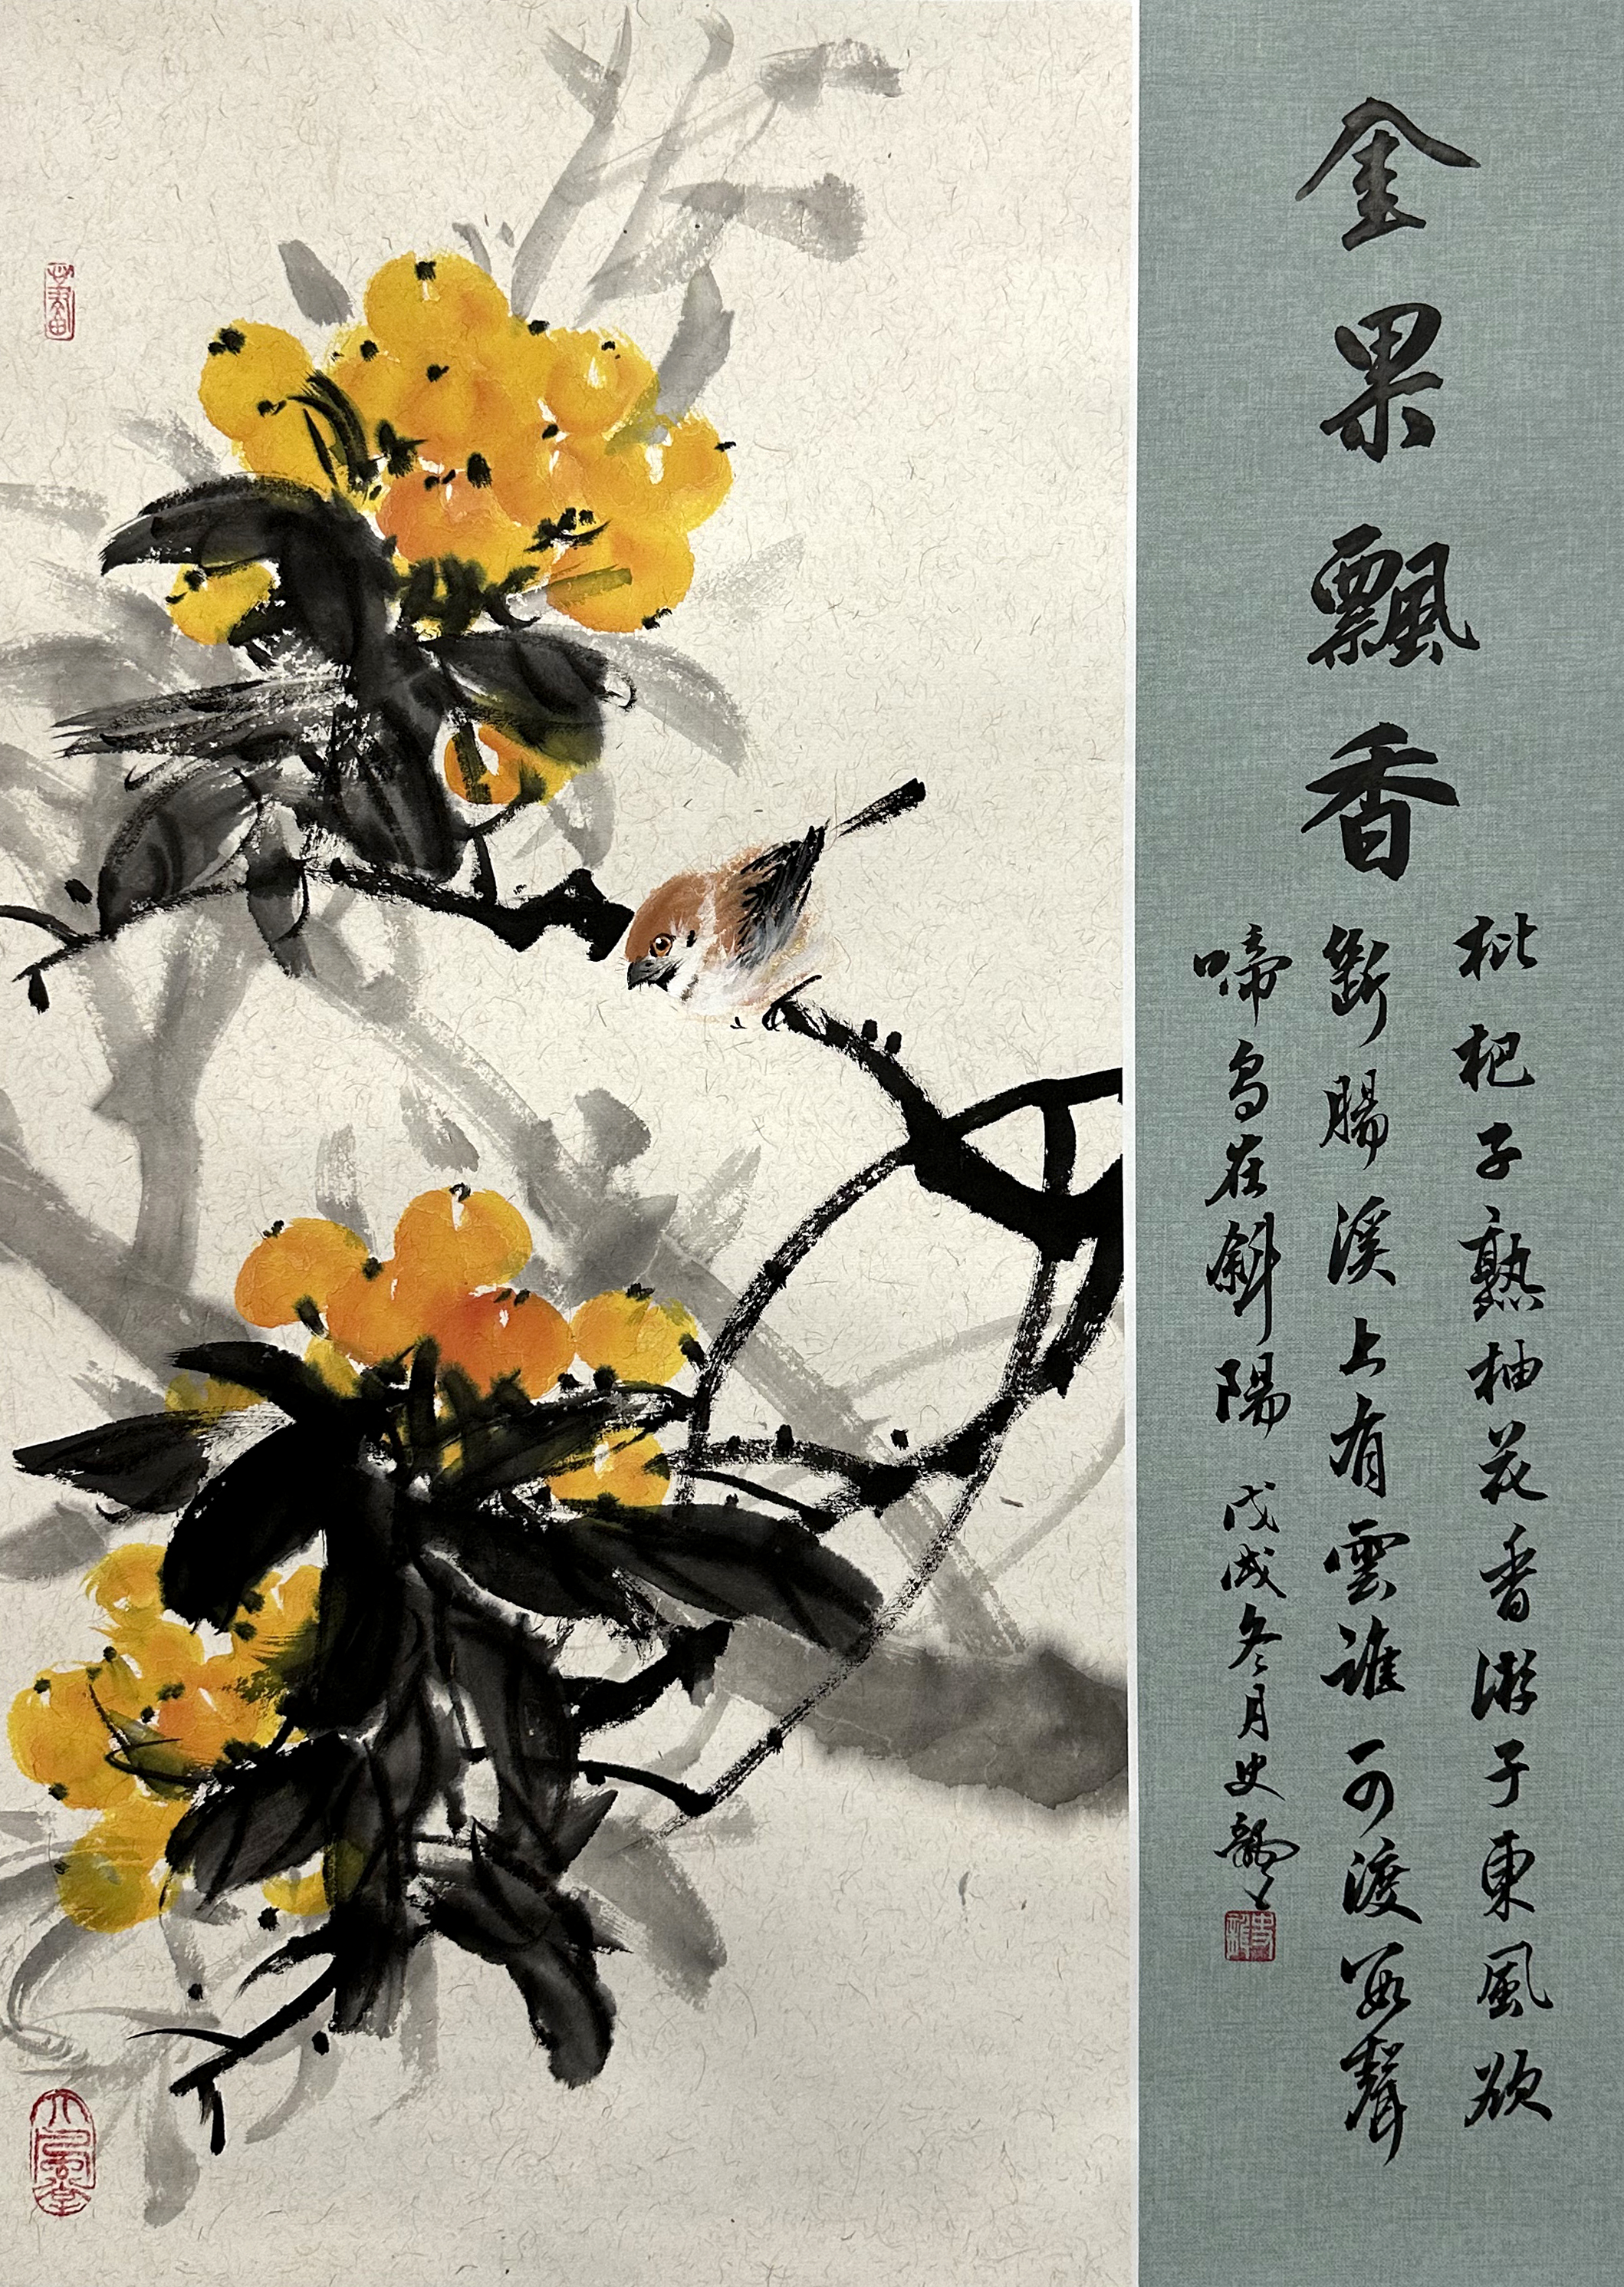 金果飄香
枇杷子熟柚花香游子東風欲
斷腸溪上有雲誰可渡數聲
啼鳥在斜陽 戊戌冬月史龍